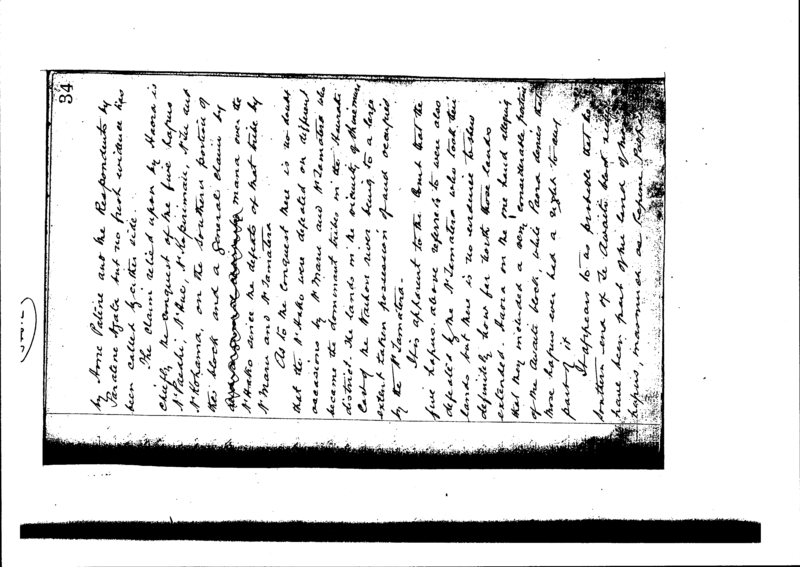 34
by Hone Patene and the Respondents by
but no fresh evidence has
been called by either side.
The claim relied upon by Haora is
Chiefly the conquest of the five hapus
N'
N' Kohama, on the Southern portion of
this block and a general claim by
mana over the
N' Hako since the defeats of that tribe by
N' Maru and N' Tamatera
As to the Conquest there is no doubt
that the N' Hako were defeated on different
occasions by N' Maru and N' Tamatera who
became the dominant tribes in the Hauraki
district. The lands in the vicinity of
East of the Waihou river being to a large
extent taken possession of and occupied
by the N' Tamatera.
It is apparent to the Court that the
five hapus above referred to were also
defeated by the N' Tamatera who took their
lands but there is no evidence to show
definitely how far north those lands
extended. Haora on the one hand alleging
that they included a very considerable portion
of the Awaiti block, while Parea denies that
those hapus ever had a right to any
part of it
It appears to us probable that the
Southern end of Te Awaiti block
have been part of the land of these
hapus, inasmuch as